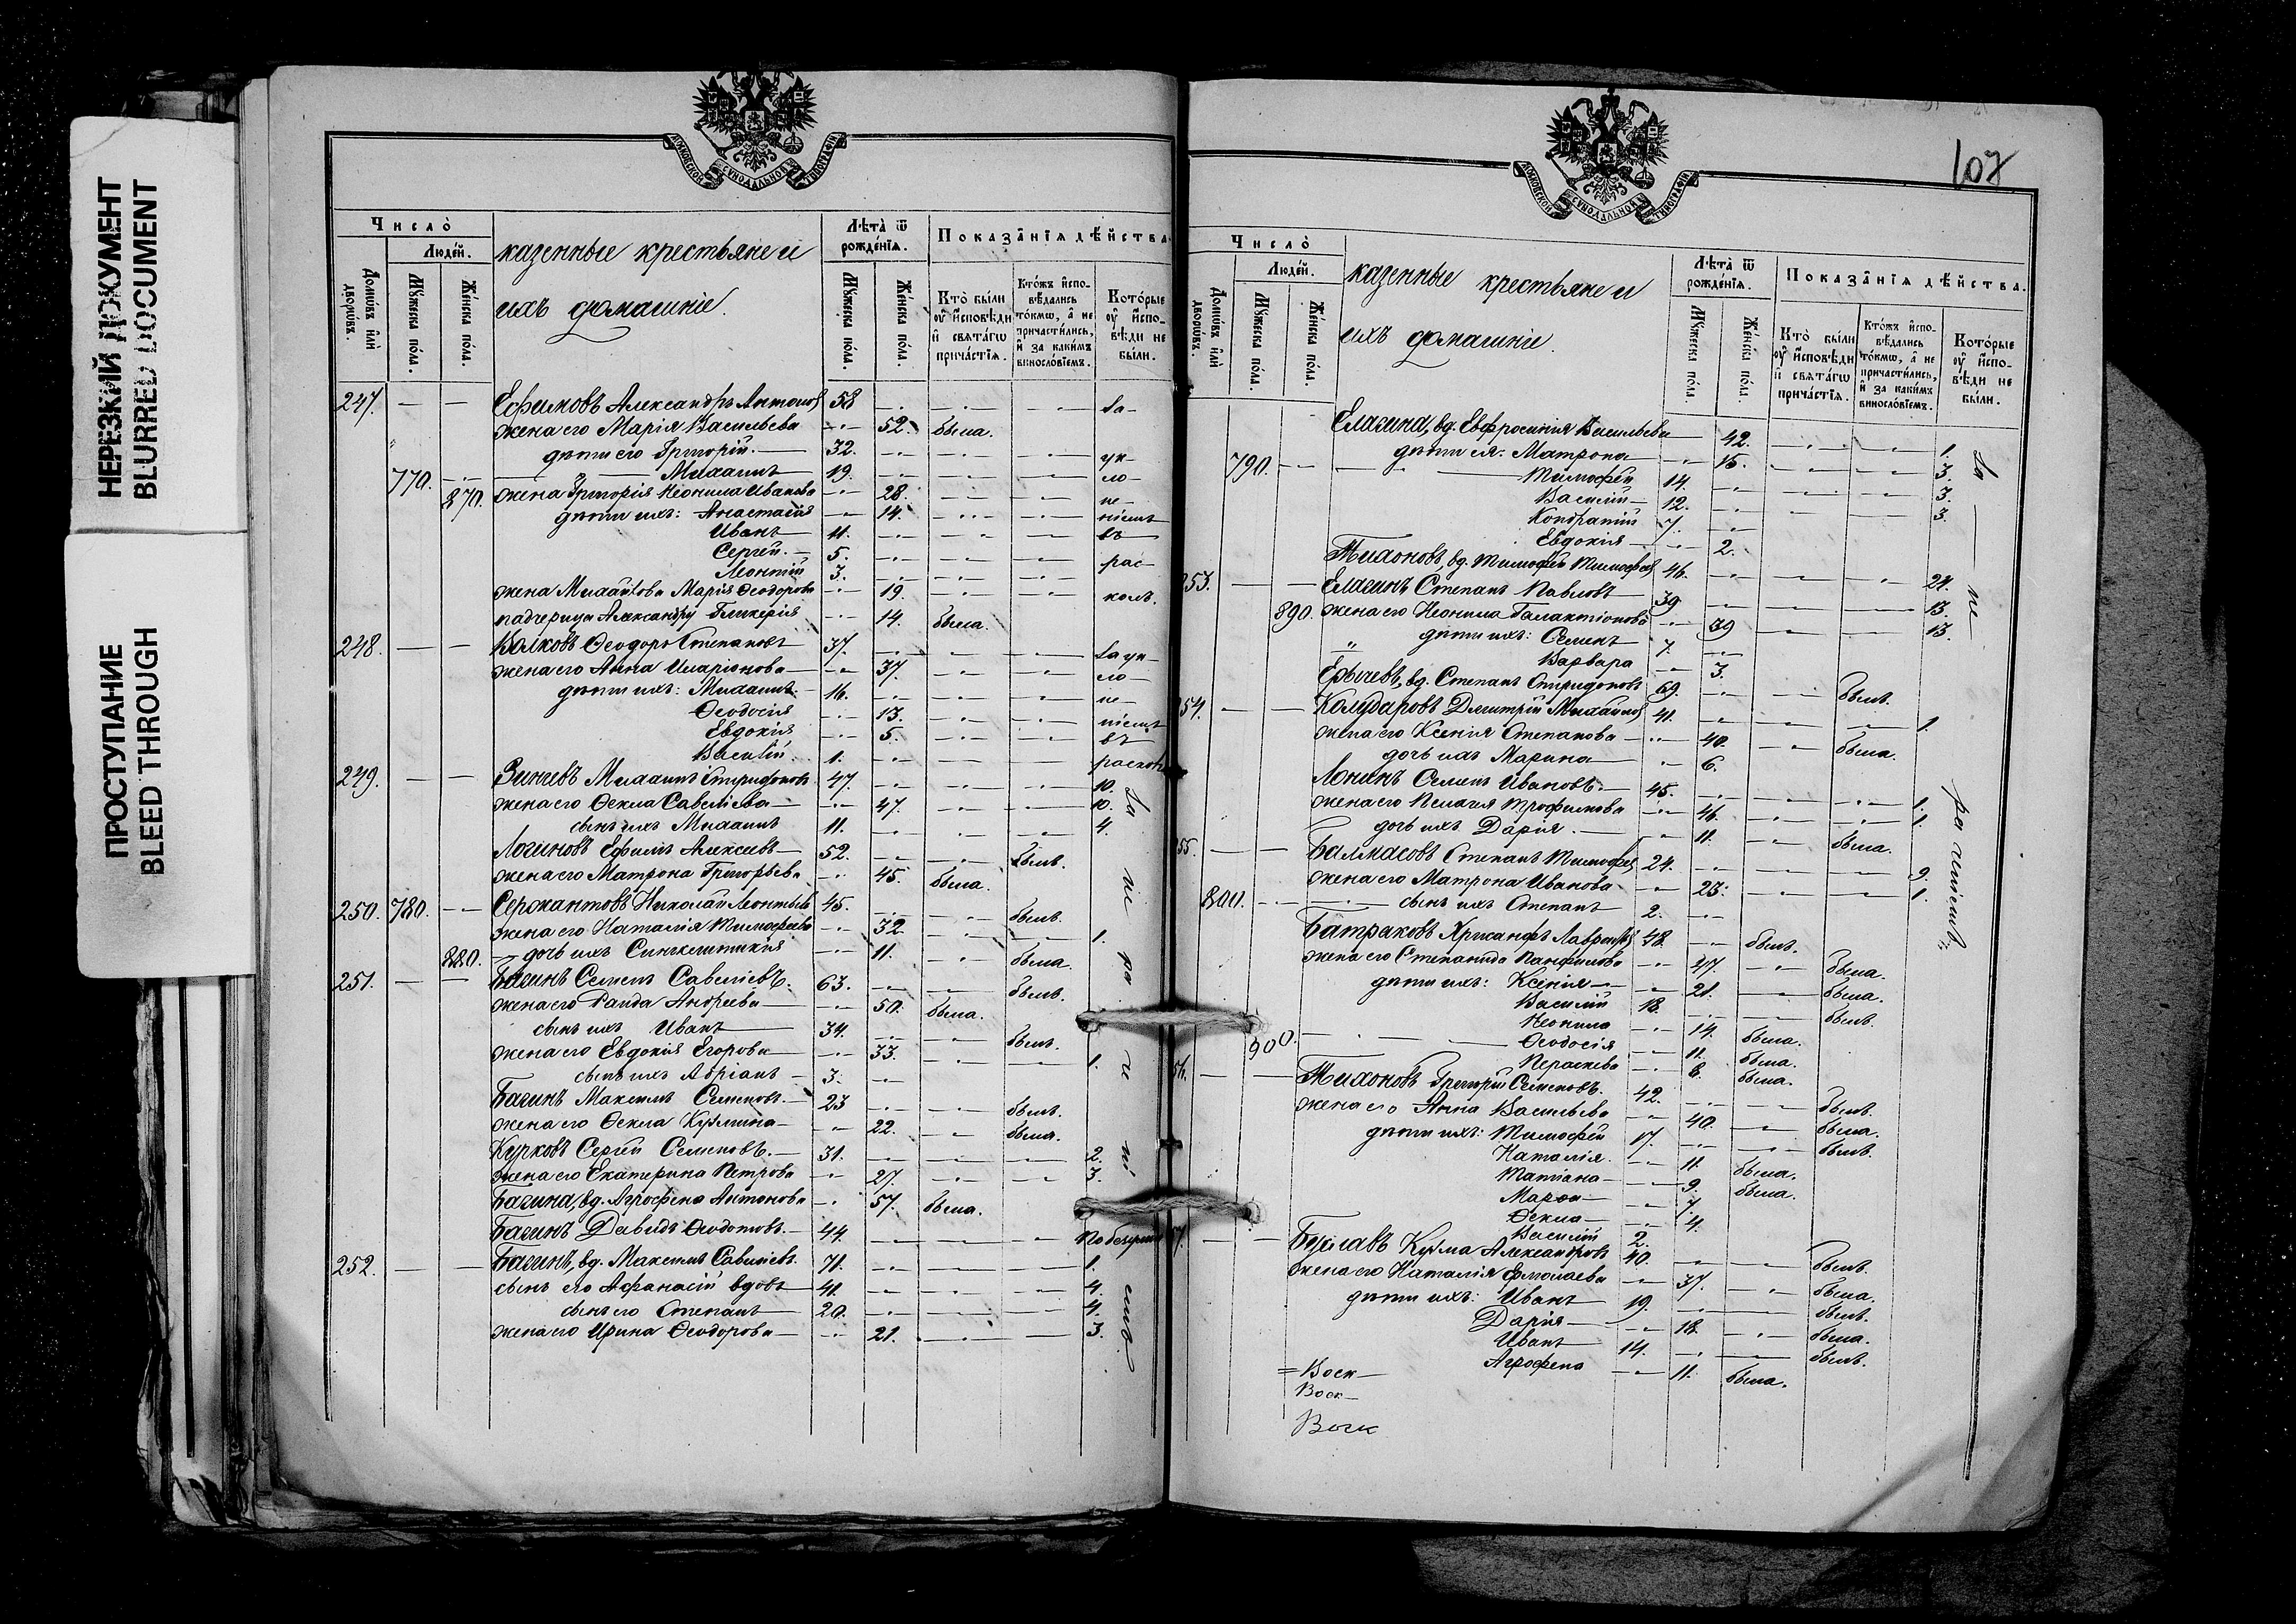 НЕРЕЗКИЙ ДОКУМЕНТ
BLURRED DOCUMENT
ПРОСТУПАНИЕ
BLEED THROUGH
МОСКОВСКОЙ СѴНОДАЛЬНОЙ ТИПОГРАФІИ
Число̀
Людéй.
Домѡ́въ и҆лѝ дворѡ́въ.
Мꙋ́жеска по́ла.
Же́нска по́ла.
казенные крестьяне и
ихъ домашніе.
Лѣ́та ѿ рожде́нїѧ.
Мꙋ́жеска по́ла.
Же́нска по́ла.
Показа́нїѧ дѣ́йства
Кто̀ бы́ли ᲂу҆ и҆сповѣ́ди и҆ свѧта́гѡ прича́стїѧ.
Кто́жъ и҆сповѣ́дались то́кмѡ, а҆ не причасти́лись, и҆ за каки́мъ винослo´вїемъ.
Кото́рые ᲂу҆ и҆сповѣ́ди не бы́ли.
247. Ефимовъ Александръ Антонов 58 за-
жена его Марія Васильева 52. была.
дѣти его Григорій. 32. ук-
770. Михаилъ 19. ло-
870. жена Григорія Неонила Иванова 28. не-
дѣти ихъ: Анастасія 14. ніемъ
Иванъ 11. въ
Сергѣй. 5. рас-
Леонтій 3.
жена Михайлова Марія Ѳеодорова 19. колъ.
падчерица Александру Гликерія 14. была.
248. Ѳеодоръ Степановъ 37. за ук-
жена его Анна Иларіонова 37. ло-
дѣти ихъ: Михаилъ 16. не-
Ѳеодосія 13. ніемъ
Евдокія 5. въ
Василій 1. расколъ
249. Михаилъ Спиридоновъ 47. 10.
жена его Ѳекла Савеліева 47. 10.
сынъ ихъ Михаилъ 11. 4.
Логиновъ Ефимъ Алексеевъ 52. былъ.
жена его Матрона Григорьева 45. была.
250. 780. Сержантовъ Николай Леонтьев 45. былъ.
жена его Наталія Тимофеева 32. 1.
880. дочь ихъ Синклитикія 11. была.
251. Багинъ Семенъ Савеліевъ. 63. былъ.
жена его Раида Андреева 50. была.
сынъ ихъ Иванъ 34. былъ.
жена его Евдокія Егорова 33. 1.
сынъ ихъ Адріанъ 3.
Багинъ Максимъ Семеновъ. 23 былъ.
жена его Ѳекла Кузмина 22. была.
Курковъ Сергѣй Семеновъ. 31. 2.
жена его Екатерина Петрова 27. 3.
Багина, вд. Агрофена Антонова 57. была.
Багинъ Давидъ Ѳеодотовъ. 44.
252. Багинъ, вд. Максимъ Савеліевъ. 71. 1.
сынъ его Афанасій вдовъ 41. 4.
сынъ его Степанъ 20. 4.
жена его Ирина Ѳеодорова 21. 3.
за не ра че ні емъ
107
МОСКОВСКОЙ СѴНОДАЛЬНОЙ ТИПОГРАФІИ
Число̀
Людéй.
Домѡ́въ и҆лѝ дворѡ́въ.
Мꙋ́жеска по́ла.
Же́нска по́ла.
казенные крестьяне и
ихъ домашніе.
Лѣ́та ѿ рожде́нїѧ.
Мꙋ́жеска по́ла.
Же́нска по́ла.
Показа́нїѧ дѣ́йства.
Кто̀ бы́ли ᲂу҆ и҆сповѣ́ди и҆ свѧта́гѡ прича́стїѧ.
Кто́жъ и҆сповѣ́дались то́кмѡ, а҆ не причасти́лись, и҆ за каки́мъ винослo´вїемъ.
Кото́рые ᲂу҆ и҆сповѣ́ди не бы́ли.
Елагина, вд. Евфросинія Васильева 42. 1.
дѣти ея: Матрона 15. 3.
790. Тимофей 14. 3.
Василій 12. 3.
Кондратій 7.
Евдокія 2.
Тихоновъ, вд. Тимофей Тимофеев 46. 24.
53. Елагинъ Степанъ Павловъ 39 13.
890. жена его Неонила Галактіонова 39 13.
дѣти ихъ: Семенъ 7.
Варвара 3.
вд. Степанъ Спиридоновъ 69. былъ.
54. Колударовъ Дмитрій Михайлов 41. 1.
жена его Ксенія Степанова 40. была.
дочь ихъ Марина 6.
Лонинъ Семенъ Ивановъ. 45. 1.
жена его Пелагія Трофимова 46. 1.
дочь ихъ Дарія. 11. была.
55. Балмасовъ Степанъ Тимофеев 24. 9.
жена его Матрона Иванова 23. 1.
800. сынъ ихъ Степанъ 2.
Батраковъ Хрисанфъ 48. былъ.
жена его Степанида Панфилова 47. была.
дѣти ихъ: Ксенія 21. была.
Василій 18. былъ.
Неонила 14. была.
900. Ѳеодосія 11. была.
Параскева 8. была.
56. Тихоновъ Григорій Семеновъ. 42. былъ.
жена его Анна Васильева 40. была.
дѣти ихъ: Тимофей 17. былъ.
Наталія. 11. была.
Татіана 9. была.
Марѳа 7.
Ѳекла 4.
Василій 2.
57. Кузма Александровъ 40. былъ.
жена его Наталія Ермолаева 37. была.
дѣти ихъ: Иванъ 19. былъ.
Дарія 18. была.
Иванъ 14. былъ.
Агрофена 11. была.
= Воск-
Воск-
Воск
за не ра ченіемъ